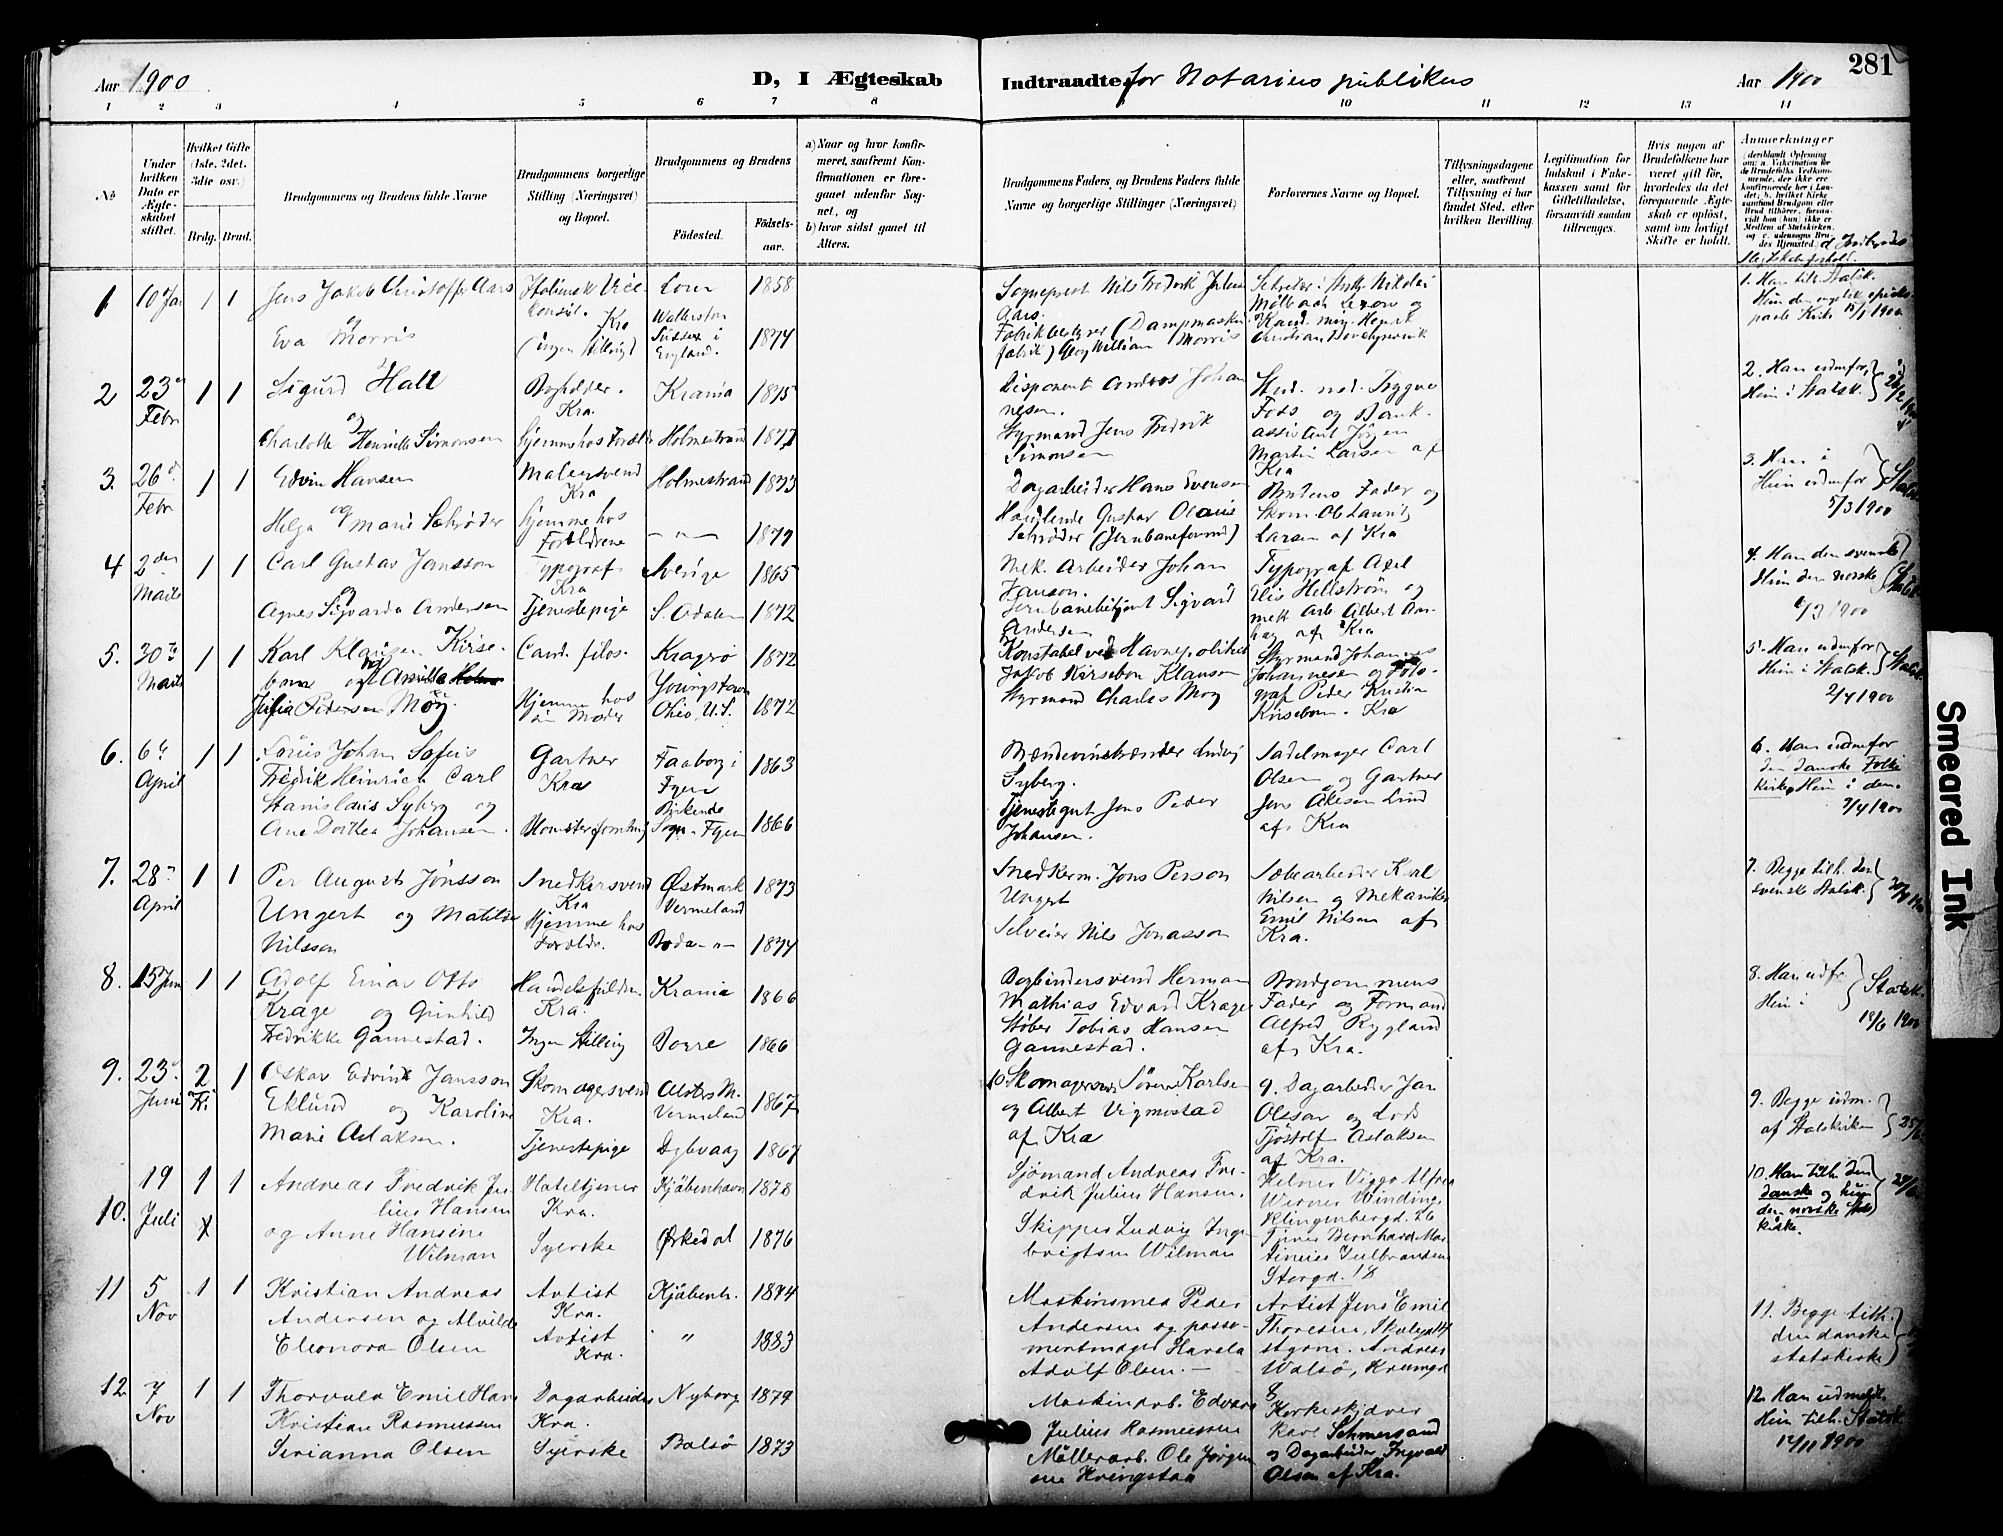 Aar 1900
D, I Ægteskab
Indtraadte for Notarius publikus
Aar 1900
281
1 2 3 4 5 6 7 8 10 11 12 13 14
No
Under hvilken Dato er Ægteskabet stiftet.
Hvilket Gifte (1ste, 2det, 3die osv.)
Brdg. Brud.
Brudgommens og Brudens fulde Navne
Brudgommens borgerlige Stilling (Næringsvei) og Bopæl.
Brudgommens og Brudens
Födested.
Födselsaar.
a) Naar og hvor konfirmeret, saafremt Konfirmationen er foregaaet udenfor Sognet, og
b) hvor sidst gaaet til Alters.
Brudgommens Faders og Brudens Faders fulde Navne og borgerlige Stillinger (Næringsvei)
Forlovernes Navne og Bopæl.
Tillysningsdagene eller, saafremt Tillysning ei har fundet Sted, efter hvilken Bevilling.
Legitimation for Indskud i Enkekassen samt for Giftetilladelse, forsaavidt saadan tiltrænges.
Hvis nogen af Brudefolkene har været gift før, hvorledes da det foregaaende Ægteskab er oplöst, samt om lovligt Skifte er holdt.
Anmerkninger
1 10 Ja 1 1
Jens Jakob Christoffer Aars
og
Eva Morris
Italiensk Vicekonsul. Kra
(ingen Stilling)
England.
1858
1874
Sogneprest Nils Fredrik Julius Aars.
Fabrikbestyrer (Dampmaskinfabrik) Georg William Morris
1. Han tilh. Statsk.
2 23d Febr 1 1
Sigurd Hall
og
Charlotte Henriette Simonsen
Bogholder.
Kra.
Hjemme hos Foræld.
Krania
Holmestrand
1875
1877
Disponent Andreas Johannesen.
Styrmand Jens Fredrik Simonsen
Stud. med. Trygve Foss og Bankassistent Jörgen Martin Larsen af Kra
2. Han udenfor,
Hun i Statsk.
3. 26d Febr 1 1
Edvin Hansen
og
Helga Marie Schrøder
Malersvend
Kra
Hjemme hos Forældrene
Holmestrand
— „ —
1873
1879
Dagarbeider Hans Evensen
Handlende Gustav Olaus Schrøder (Jernbaneformd)
Brudens Fader og Skom. Ole Lauritz Larsen af Kra
3. Han i
Hun udenfor Statsk
5/3 1900
4 2den Marts 1 1
Carl Gustav Jansson
og
Agnes Sigvarda Andersen
Typograf
Kra
Tjenestepige
Sverige
S. Odalen
1865
1872
Mek. Arbeider Johan Janson.
Jernbanebetjent Sigvard Andersen
Typograf Axel Elis Hellström og mek Arb Albert Ambag af Kra
4. Han den svenske
Hun den norske Statsk
5. 30te Marts 1 1
Karl Klausen Kirsebom og Amilla
Julia Pedersen Moy.
Cand. filos.
Hjemme hos sin Moder
Kragerø
Youngstown Ohio, U.S.
1872
1872
Konstabel ved Havnepolitiet Jakob Kirsebom Klausen
Styrmand Charles Moy
Styrmand Johannes Johannesen og Fotograf Peder Kristian Kirsebom. Kra
5. Han udenfor
Hun i Statsk.
2/4 1900
6. 6te April 1 1
Louis Johan Sofus Fredrik Heinrich Carl Stanislaus Syberg og
Ane Dorthea Johansen.
Gartner
Kra
Blomsterforretng
Faaborg i Fyen
Birkende Sogn - Fyen
1863
1866
Brændevinsbrænder Ludvig Syberg.
Tjenestegut Jens Peder Johansen.
Sadelmager Carl Olsen og Gartner Jens Åkesen Lind af Kra
6. Han udenfor den danske Folkekirke, Hun i den.
7/4 1900
7. 28de April 1 1
Per August Jönsson Ungert og Matilda Nilsson
Snedkersvend
Kra
Hjemme hos Foreldr.
Østmark Vermeland
Boda - „ -
1873
1874
Snedkerm. Jöns Person Ungert
Selveier Nils Jonasson
Sæbearbeider Karl Nilsen og Mekaniker Emil Nilsen af Kra.
7. Begge tilh. den svenske Statsk.
8. 15 Jun 1 1
Adolf Einar Otto Krage og Gunhild Fredrikke Gannestad.
Handelsfuldm.
Kra.
Ingen Stilling
Krania
Borre
1866
1866
Bogbindersvend Herman Mathias Edvard Krage
Støber Tobias Hansen Gannestad.
Brudgommens Fader og Formand Alfred Rygland af Kra.
8. Han udfr.
Hun i Statsk.
18/6 1900
9. 23d Juni 2 1
Oskar Edvin Jansson Eklund og Karoline Marie Aslaksen.
Skomagersvend
Kra.
Tjenestepige
Alsters M. Vermeland
Dybvaag
1867
1867
10 Skomagersv. Søren Karlsen og Albert Vigmostad af Kra
9. Dagarbeider Jan Olsson og Lods Tjöstolf Aslaksen af Kra.
9. Begge udm. af Statskirken
10. 19 Juli 1 1
x
Andreas Fredrik Julius Hansen
og Anne Hansine Wilman
Hoteltjener
Kra.
Syerske
Kjöbenhavn
Ørkedal
1878
1876
Sjömand Andreas Fredrik Julius Hansen.
Skipper Ludvig Ingebrigtsen Wilman
Kelner Viggo Alfred Werner Winding, Klingenbergd. 26
Bernhard Martinius Gulbrandsen Storgd. 18
10. Han tilh. den danske og hun den norske Statskirke.
11 5 Nov 1 1
Kristian Andreas Andersen og Alvilda Eleonora Olsen
Artist
Kra.
Artist
Kra.
Kjöbenh.
„
1874
1883
Maskinsmed Peder Andersen og possementmager Harald Adolf Olsen. —
Artist Jens Emil Thoresen, Skolegd 17
Andreas Walsö,
11. Begge tilh. den danske statskirke
12. 7 Nov 1 1
Thorvald Emil Hans Kristian Rasmussen
Serianna Olsen
Dagarbeider
Kra.
Syerske
Nyborg
Balsö
1879
1873
Maskinarb. Edvard Julius Rasmussen
Möllerarb. Ole Jörgensen Kringstad
8
Korkeskjærer Karl Schmersand og Dagarbeider Ingvald Olsen af Kra.
12. Han udmeldt.
Hun tilh. Statsk.
12/11 1900
Smeared Ink